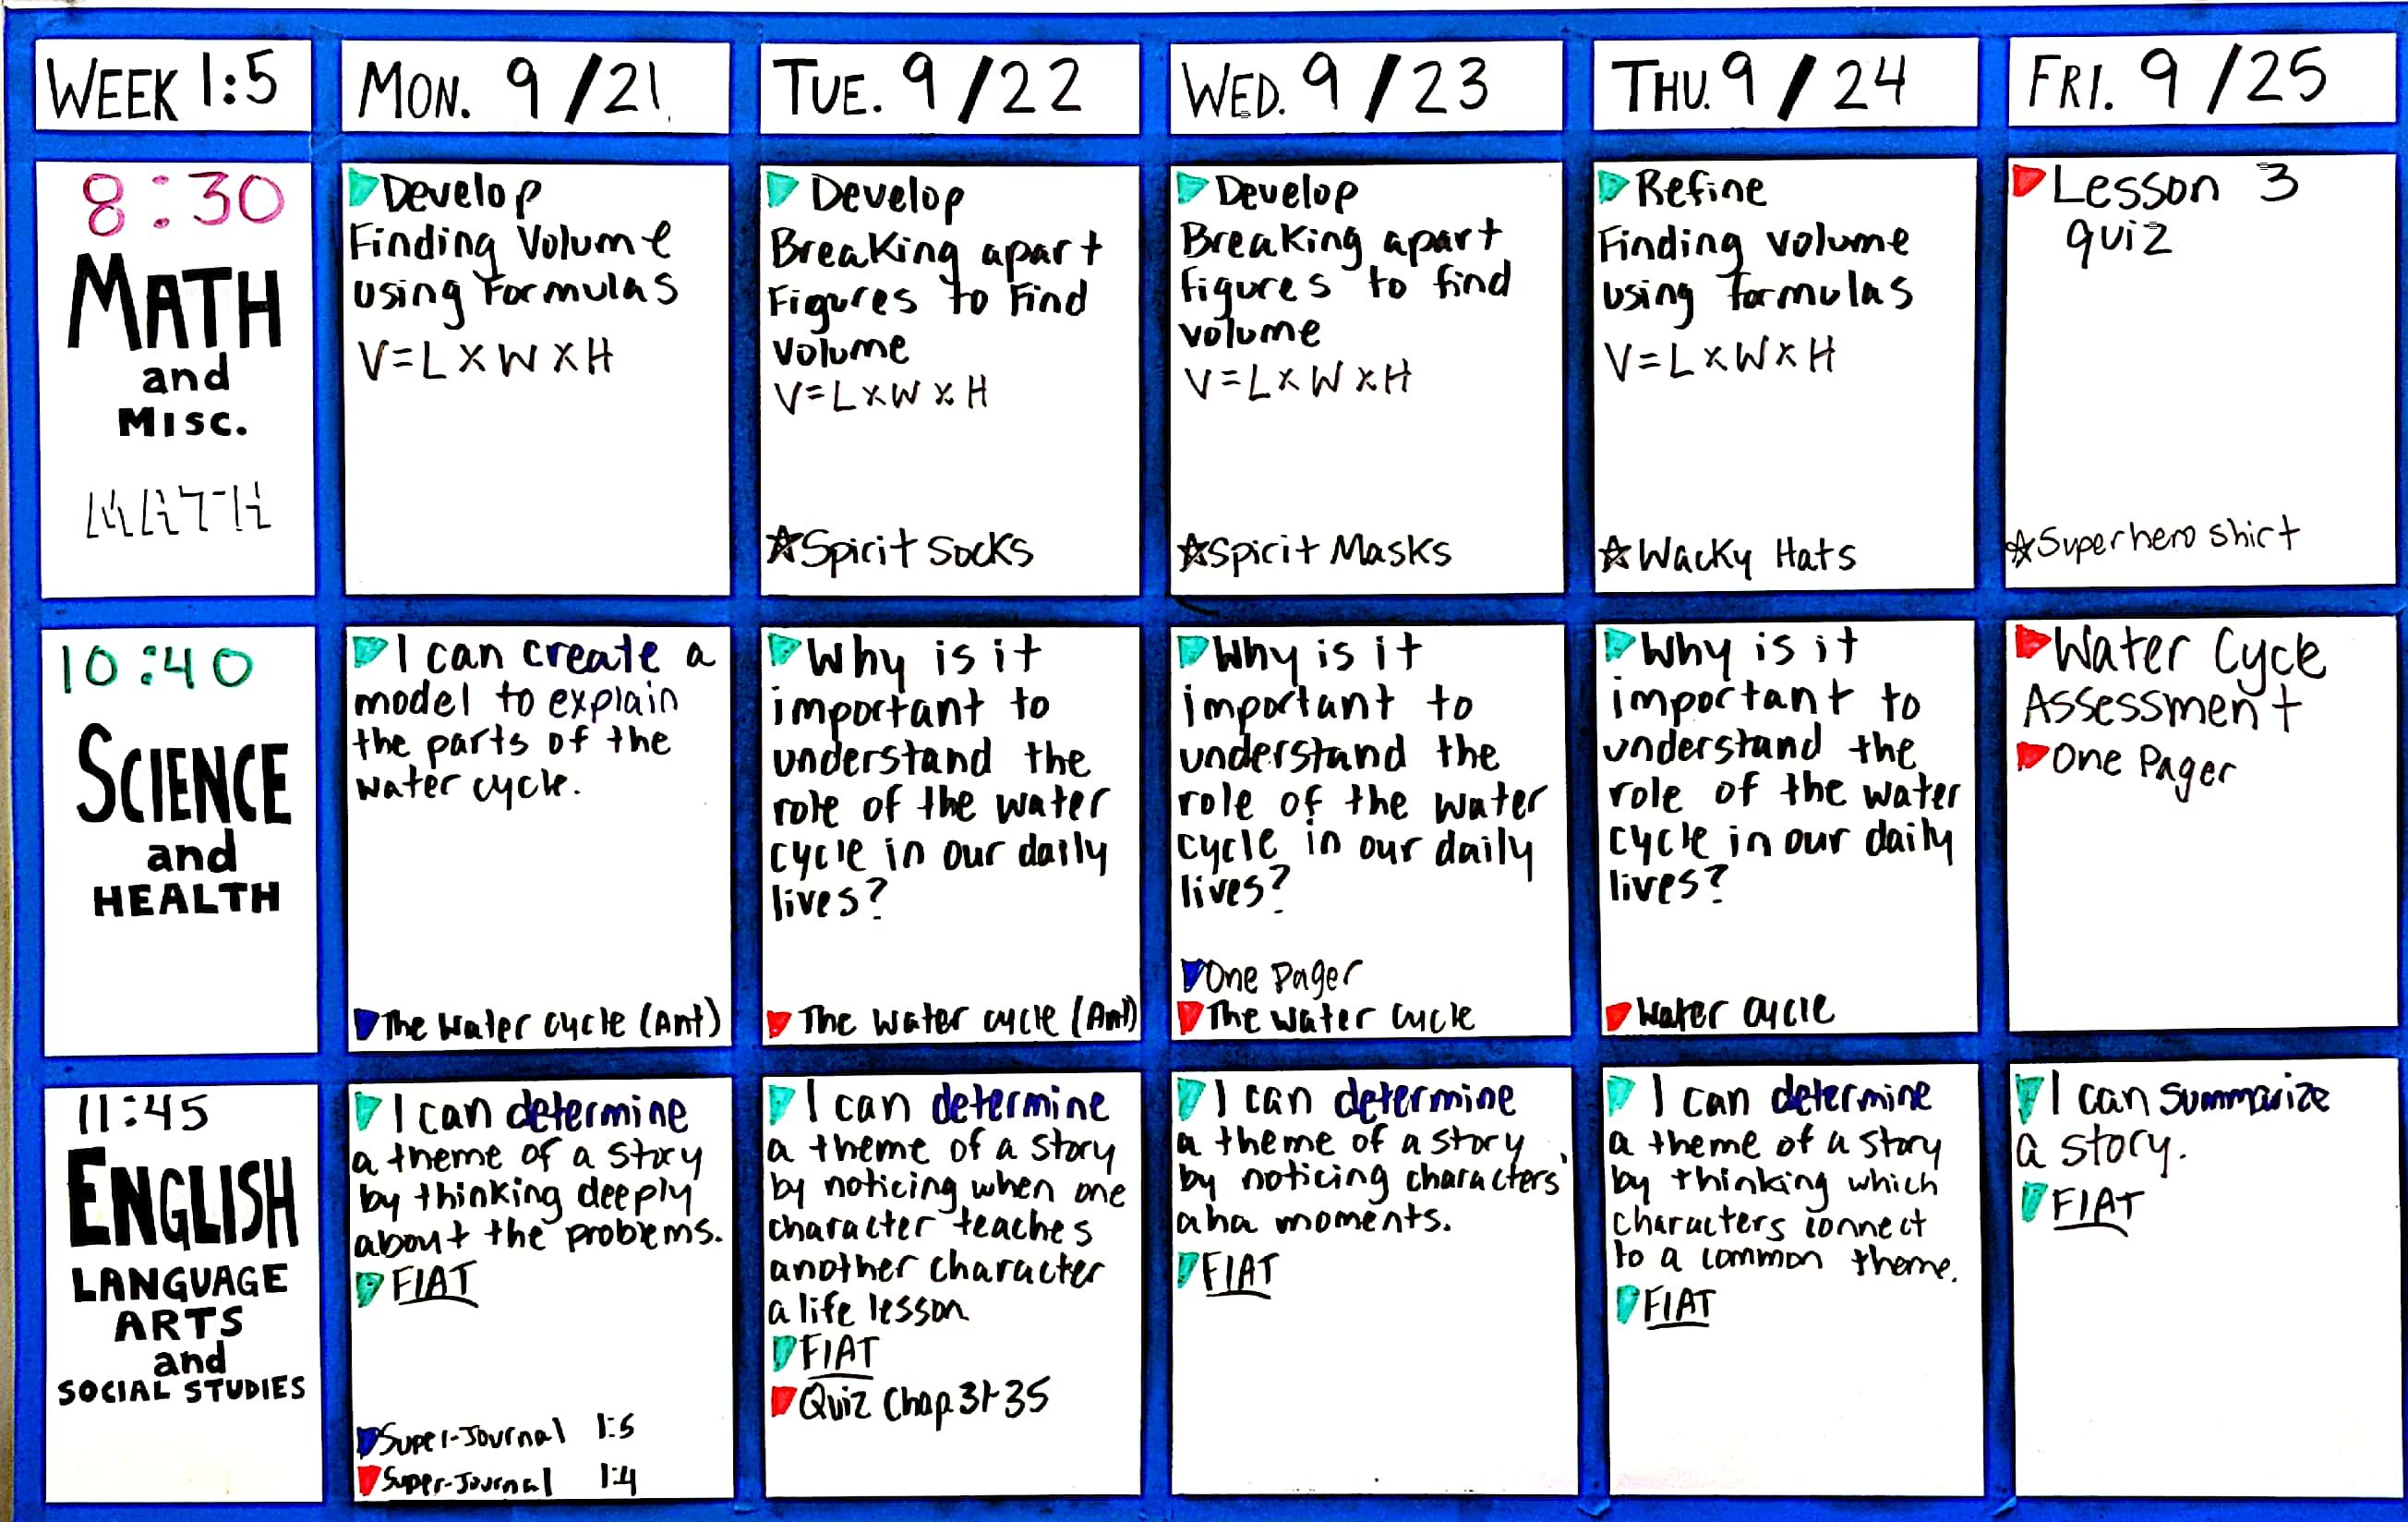 WEEK 1:5
MON. 9/21
TUE. 9/22
WED. 9/23
THU. 9/24
FRI. 9/25
8:30
MATH
and
MISC.
MATH
Develop
Finding Volume
using Formulas
V=LXWXH
Develop
Breaking apart
Figures to Find
Volume
V=LXWXH
☆Spirit Socks
Develop
Breaking apart
figures to find
volume
V=LXWXH
☆Spirit Masks
Refine
Finding volume
using formulas
V=LXWXH
☆Wacky Hats
Lesson 3
quiz
☆Superhero shirt
10:40
SCIENCE
and
HEALTH
I can create a
model to explain
the parts of the
water cycle.
The Water cycle (Ant)
Why is it
important to
understand the
role of the water
cycle in our daily
lives?
The water cycle (Ant)
Why is it
important to
understand the
role of the water
cycle in our daily
lives?
One Pager
The water cycle
Why is it
important to
understand the
role of the water
cycle in our daily
lives?
Water cycle
Water Cycle
Assessment
One Pager
11:45
ENGLISH
LANGUAGE
ARTS
and
SOCIAL STUDIES
I can determine
a theme of a story
by thinking deeply
about the problems.
FIAT
Super-Journal 1:5
Super-Journal 1:4
I can determine
a theme of a story
by noticing when one
character teaches
another character
a life lesson
FIAT
Quiz Chap 31-35
I can determine
a theme of a story
by noticing characters'
aha moments.
FIAT
I can determine
a theme of a story
by thinking which
characters connect
to a common theme.
FIAT
I can summarize
a story.
FIAT